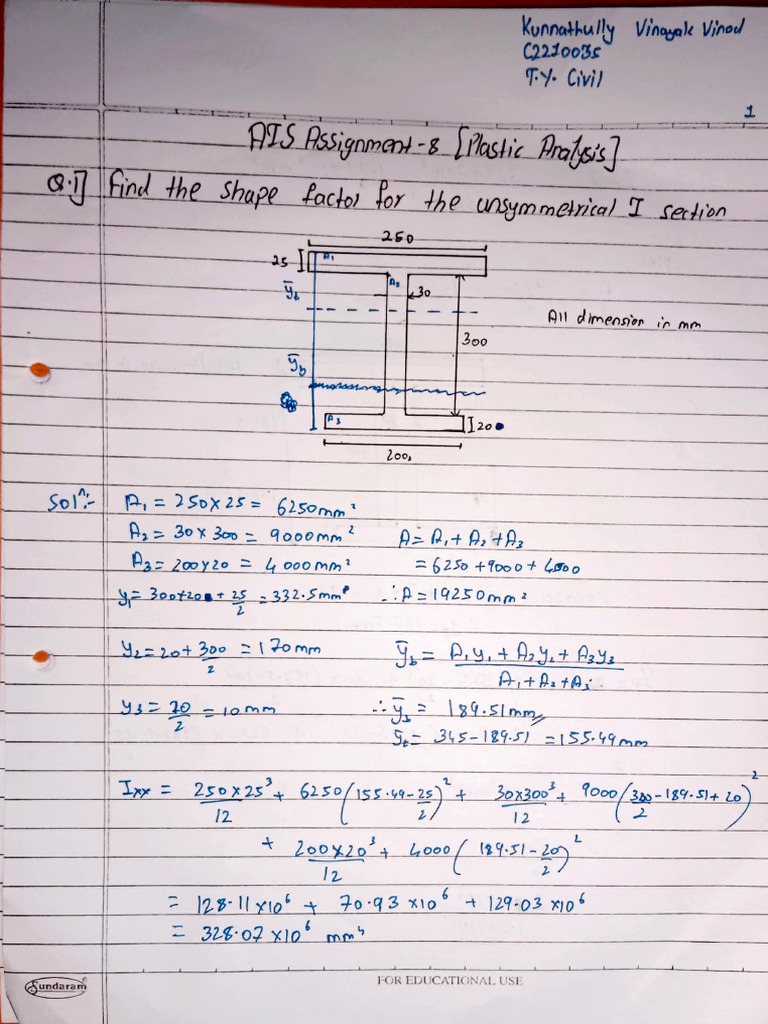 Kunnathully Vinayak Vinod
C2210035
T.Y. Civil
1
AIS Assignment-8 [Plastic Analysis]
Q.1] Find the shape factor for the unsymmetrical I section
250
25
A₁
A₂
ȳt
30
All dimension in mm
300
ȳb
A₃
20
200
Solⁿ:- A₁ = 250×25 = 6250mm²
A₂ = 30×300 = 9000mm² A = A₁+A₂+A₃
A₃ = 200×20 = 4000mm² = 6250+9000+4000
y₁ = 300+20+25/2 = 332.5mm ∴A = 19250mm²
y₂ = 20+300/2 = 170mm ȳb = A₁y₁ + A₂y₂ + A₃y₃ / A₁+A₂+A₃
y₃ = 20/2 = 10mm ∴ȳb = 189.51mm
ȳt = 345-189.51 = 155.49mm
Ixx = 250×25³/12 + 6250(155.49-25/2)² + 30×300³/12 + 9000(300/2-189.51+20)²
+ 200×20³/12 + 4000(189.51-20/2)²
= 128.11×10⁶ + 70.93×10⁶ + 129.03×10⁶
= 328.07×10⁶ mm⁴
Sundaram®
FOR EDUCATIONAL USE